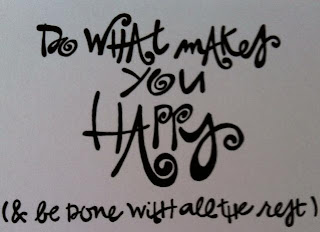 Do WHAT mAKes
YOU
HAPPy
(& be Done WiTH all THe resT)